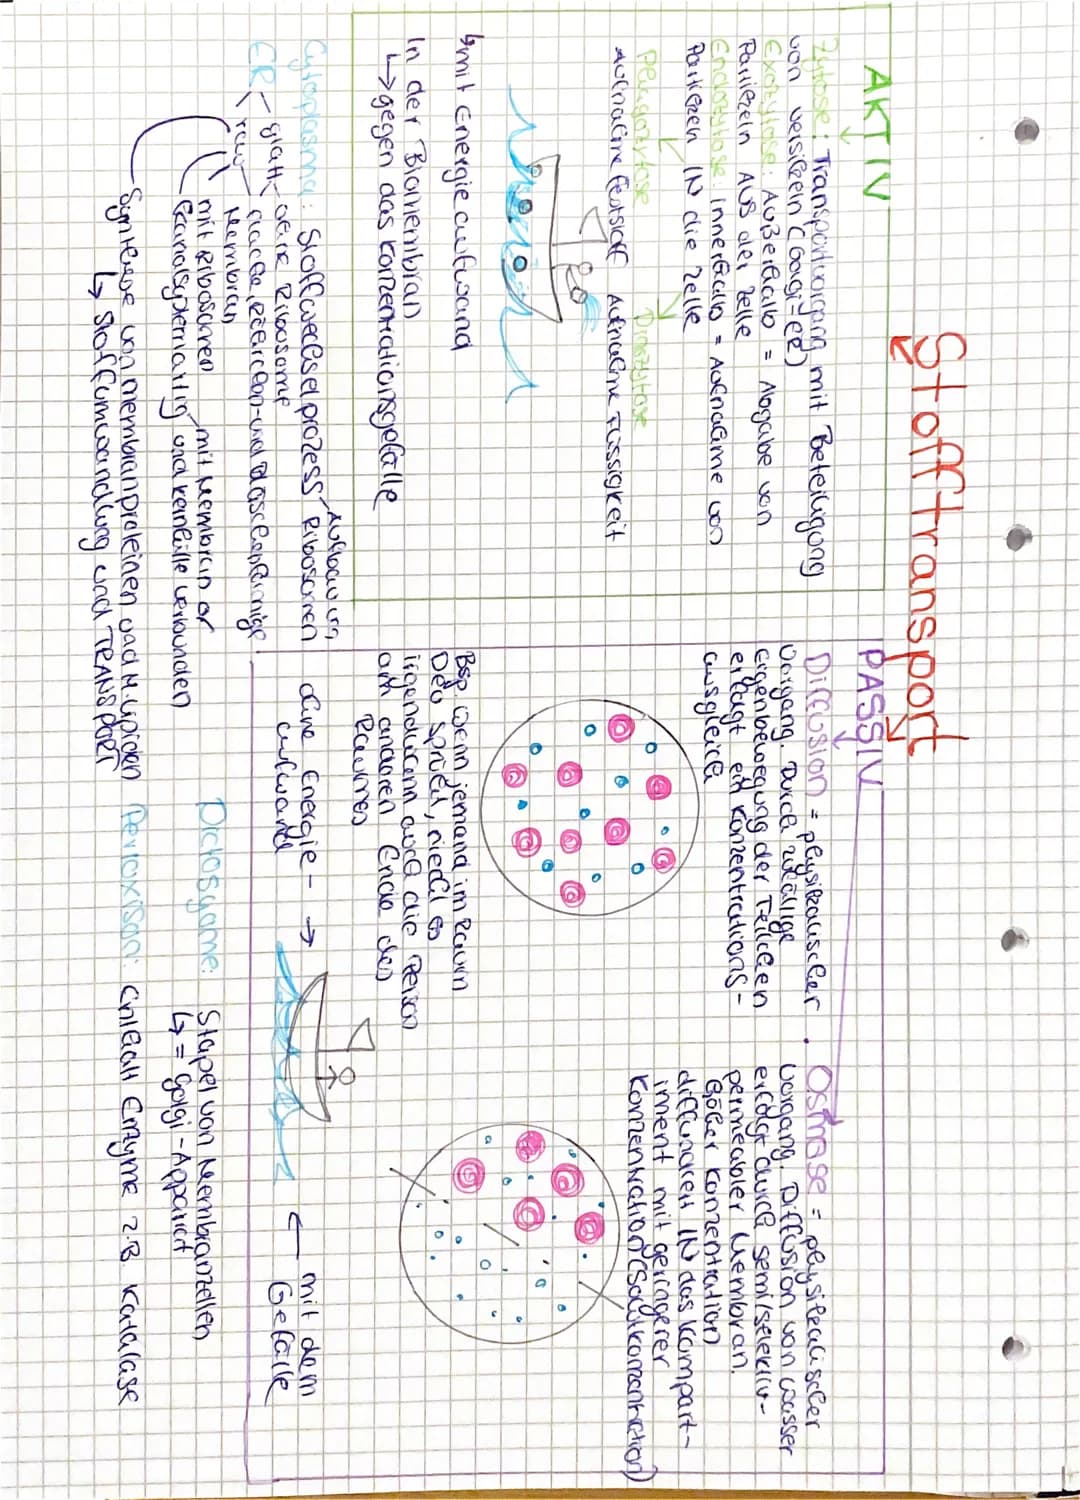 Stofftransport
AKTIV
Zytose: Transportvorgang mit Beteiligung
von Vesikeln (Golgi-ER)
Exozytose: Außerhalb = Abgabe von
Partikeln AUS der Zelle
Endozytose: innerhalb = Aufnahme von
Partikeln IN die Zelle
Phagozytose Pinozytose
Aufnahme Feststoff Aufnahme Flüssigkeit
↳mit Energieaufwand
In der Biomembran
↳gegen das Konzentrationsgefälle
PASSIV
Diffusion = physikalischer
Vorgang. Durch zufällige
Eigenbewegung der Teilchen
erfolgt ein Konzentrations-
ausgleich
Bsp wenn jemand im Raum
Deo sprüht, riecht es
irgendwann auch die Person
am anderen Ende des
Raumes
ohne Energie- →
aufwand
Osmose = physikalischer
Vorgang. Diffusion von Wasser
erfolgt durch semi/selektiv-
permeabler Membran.
Höher Konzentration
diffundiert IN das Kompart-
iment mit geringerer
Konzentration (Salzkonzentration)
← mit dem
Gefälle
Cytoplasma: Stoffwechselprozess Aufbau von
Ribosomen
ER glatt ohne Ribosome
rau flache, röhrchen- und bläschenförmige
Membran
mit Ribosomen mit Membran or
Kanalsystemartig und Kernhülle verbunden
Synthese von Membranproteinen und M.lipiden
↳ Stoffumwandlung und TRANSPORT
Dictosyome: Stapel von Membranzellen
↳ = Golgi-Apparat
Peroxison: Enthält Enzyme z.B Katalase